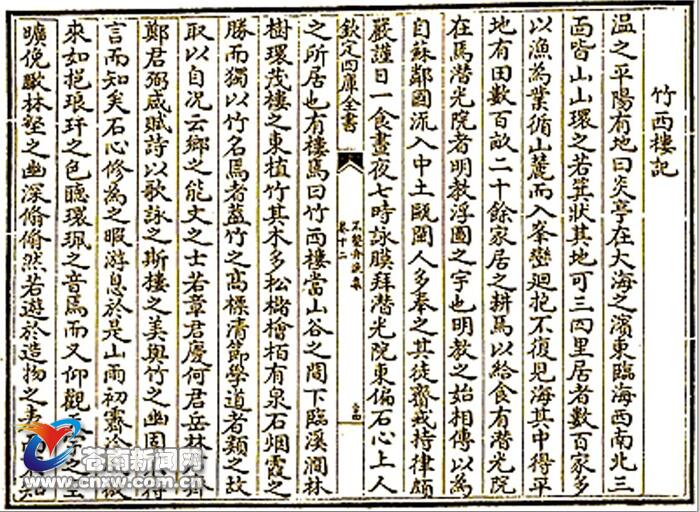 竹西樓記
温之平陽有地曰炎亭在大海之濱東臨海西南北三
面皆山山環之若箕狀其地可三四里居者數百家多
以漁為業循山麓而入峯巒迴抱不復見海其中得平
地有田數百畝二十餘家居之耕焉以給食有潜光院
在焉潜光院者明教浮圖之宇也明教之始相傳以為
自蘇鄰國流入中土甌閩人多奉之其徒齋戒持律頗
嚴謹日一食晝夜七時詠膜拜潜光院東偏石心上人
欽定四庫全書
不繫舟漁集
卷十二
之所居也有樓焉曰竹西樓當山谷之間下臨溪澗林
樹環茂樓之東植竹其木多松櫧檜栢有泉石烟霞之
勝而獨以竹名焉者蓋竹之高標清節學道者類之故
取以自况云鄉之能文之士若章君慶何君岳林齊
鄭君弼咸賦詩以歌詠之斯樓之美與竹之幽固待
言而知矣石心修為之暇游息於是山雨初霽冷
來如挹琅玕之色聽環珮之音焉而又仰觀天宇之空
曠俛瞰林壑之幽深翛翛然若遊於造物之表知
苍南新闻网
www.cnxw.com.cn